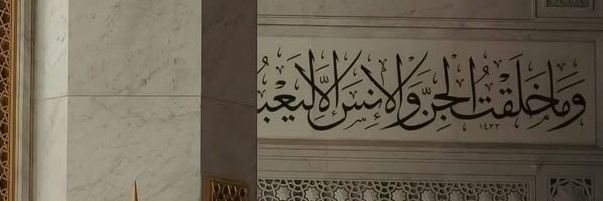 وَمَا خَلَقْتُ الْجِنَّ وَالْإِنسَ إِلَّا لِيَعْبُ
١٤٣٣